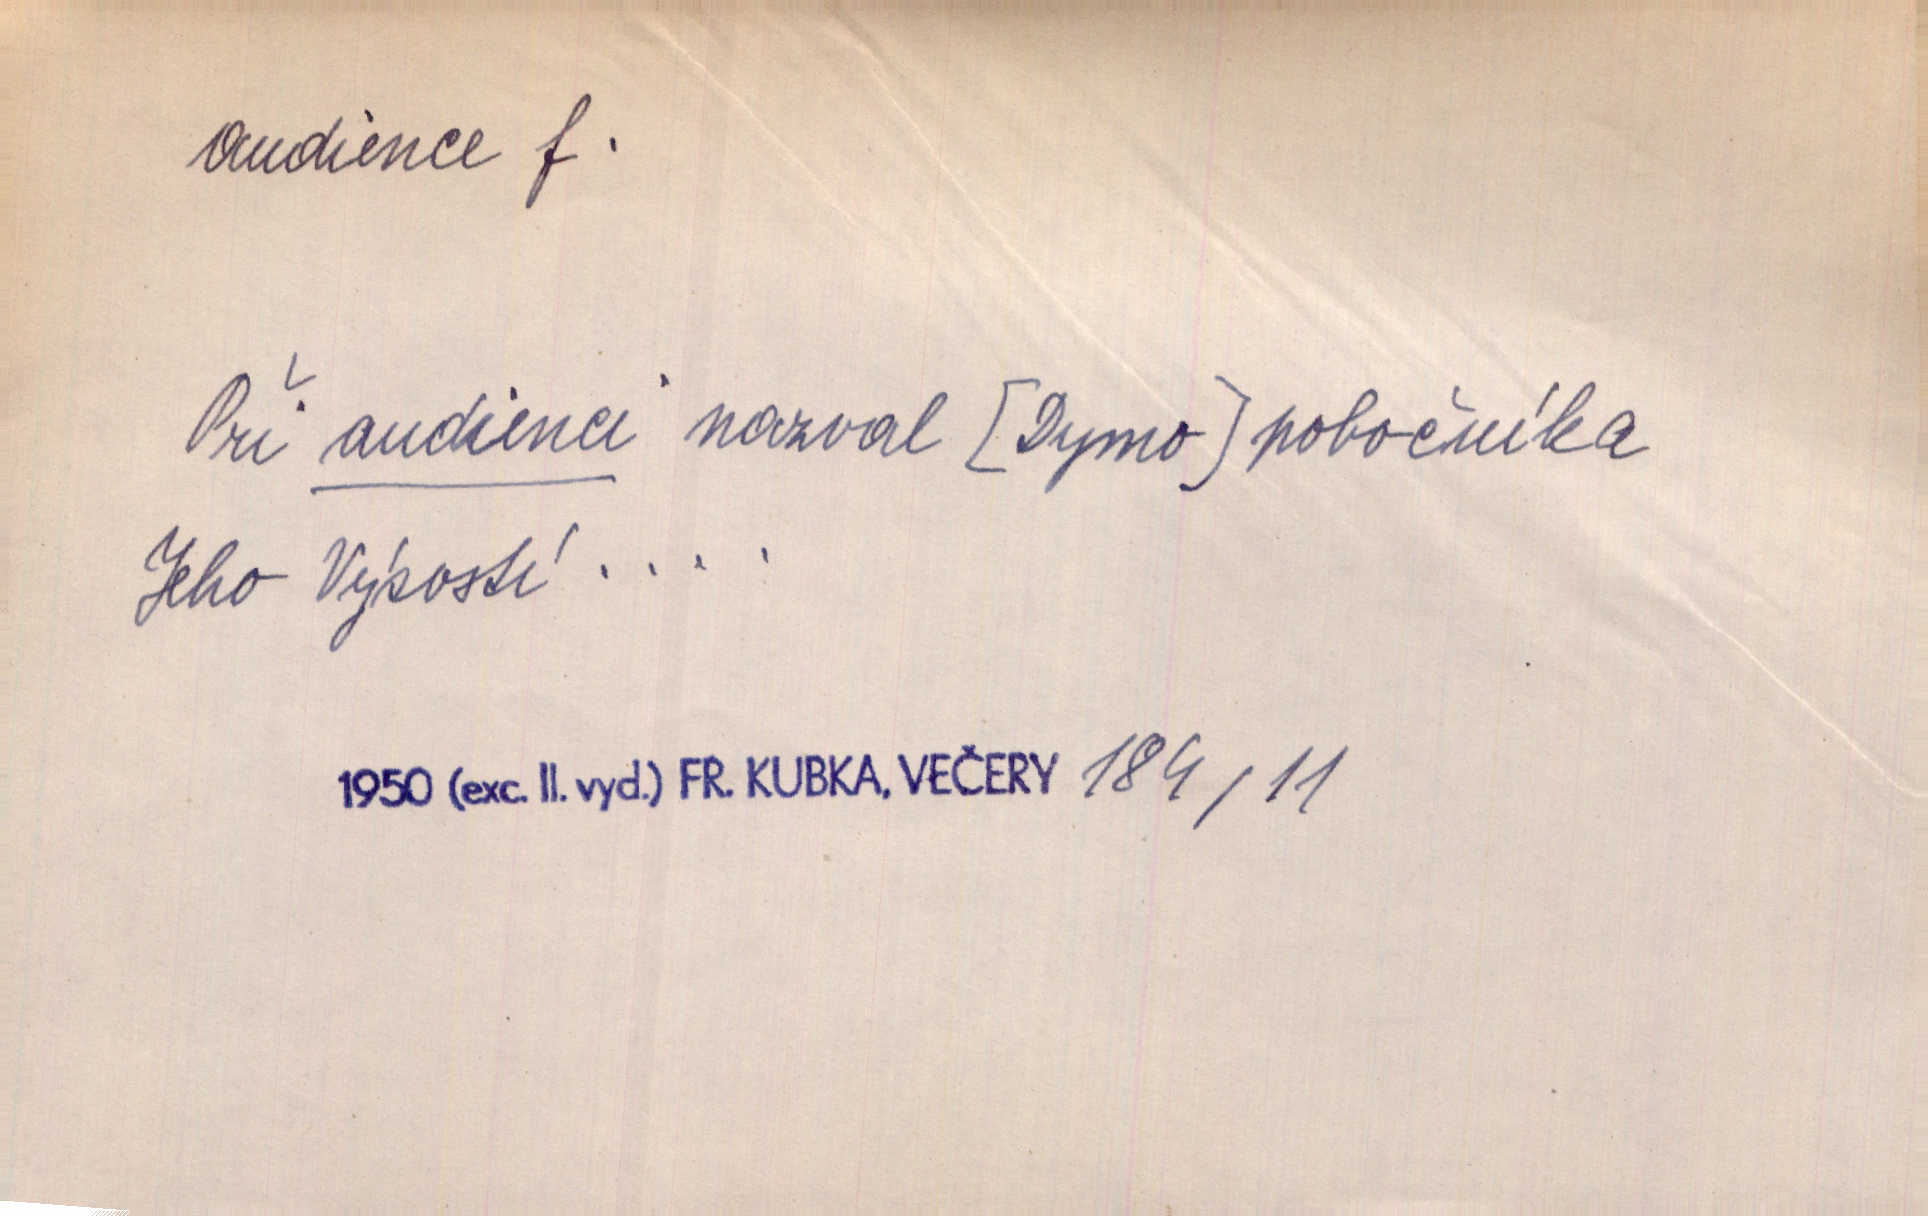 audience f.
Při audienci nazval [Dymo] pobočníka
Jeho Výsostí ....
1950 (exc. II. vyd.) FR. KUBKA, VEČERY 184/11